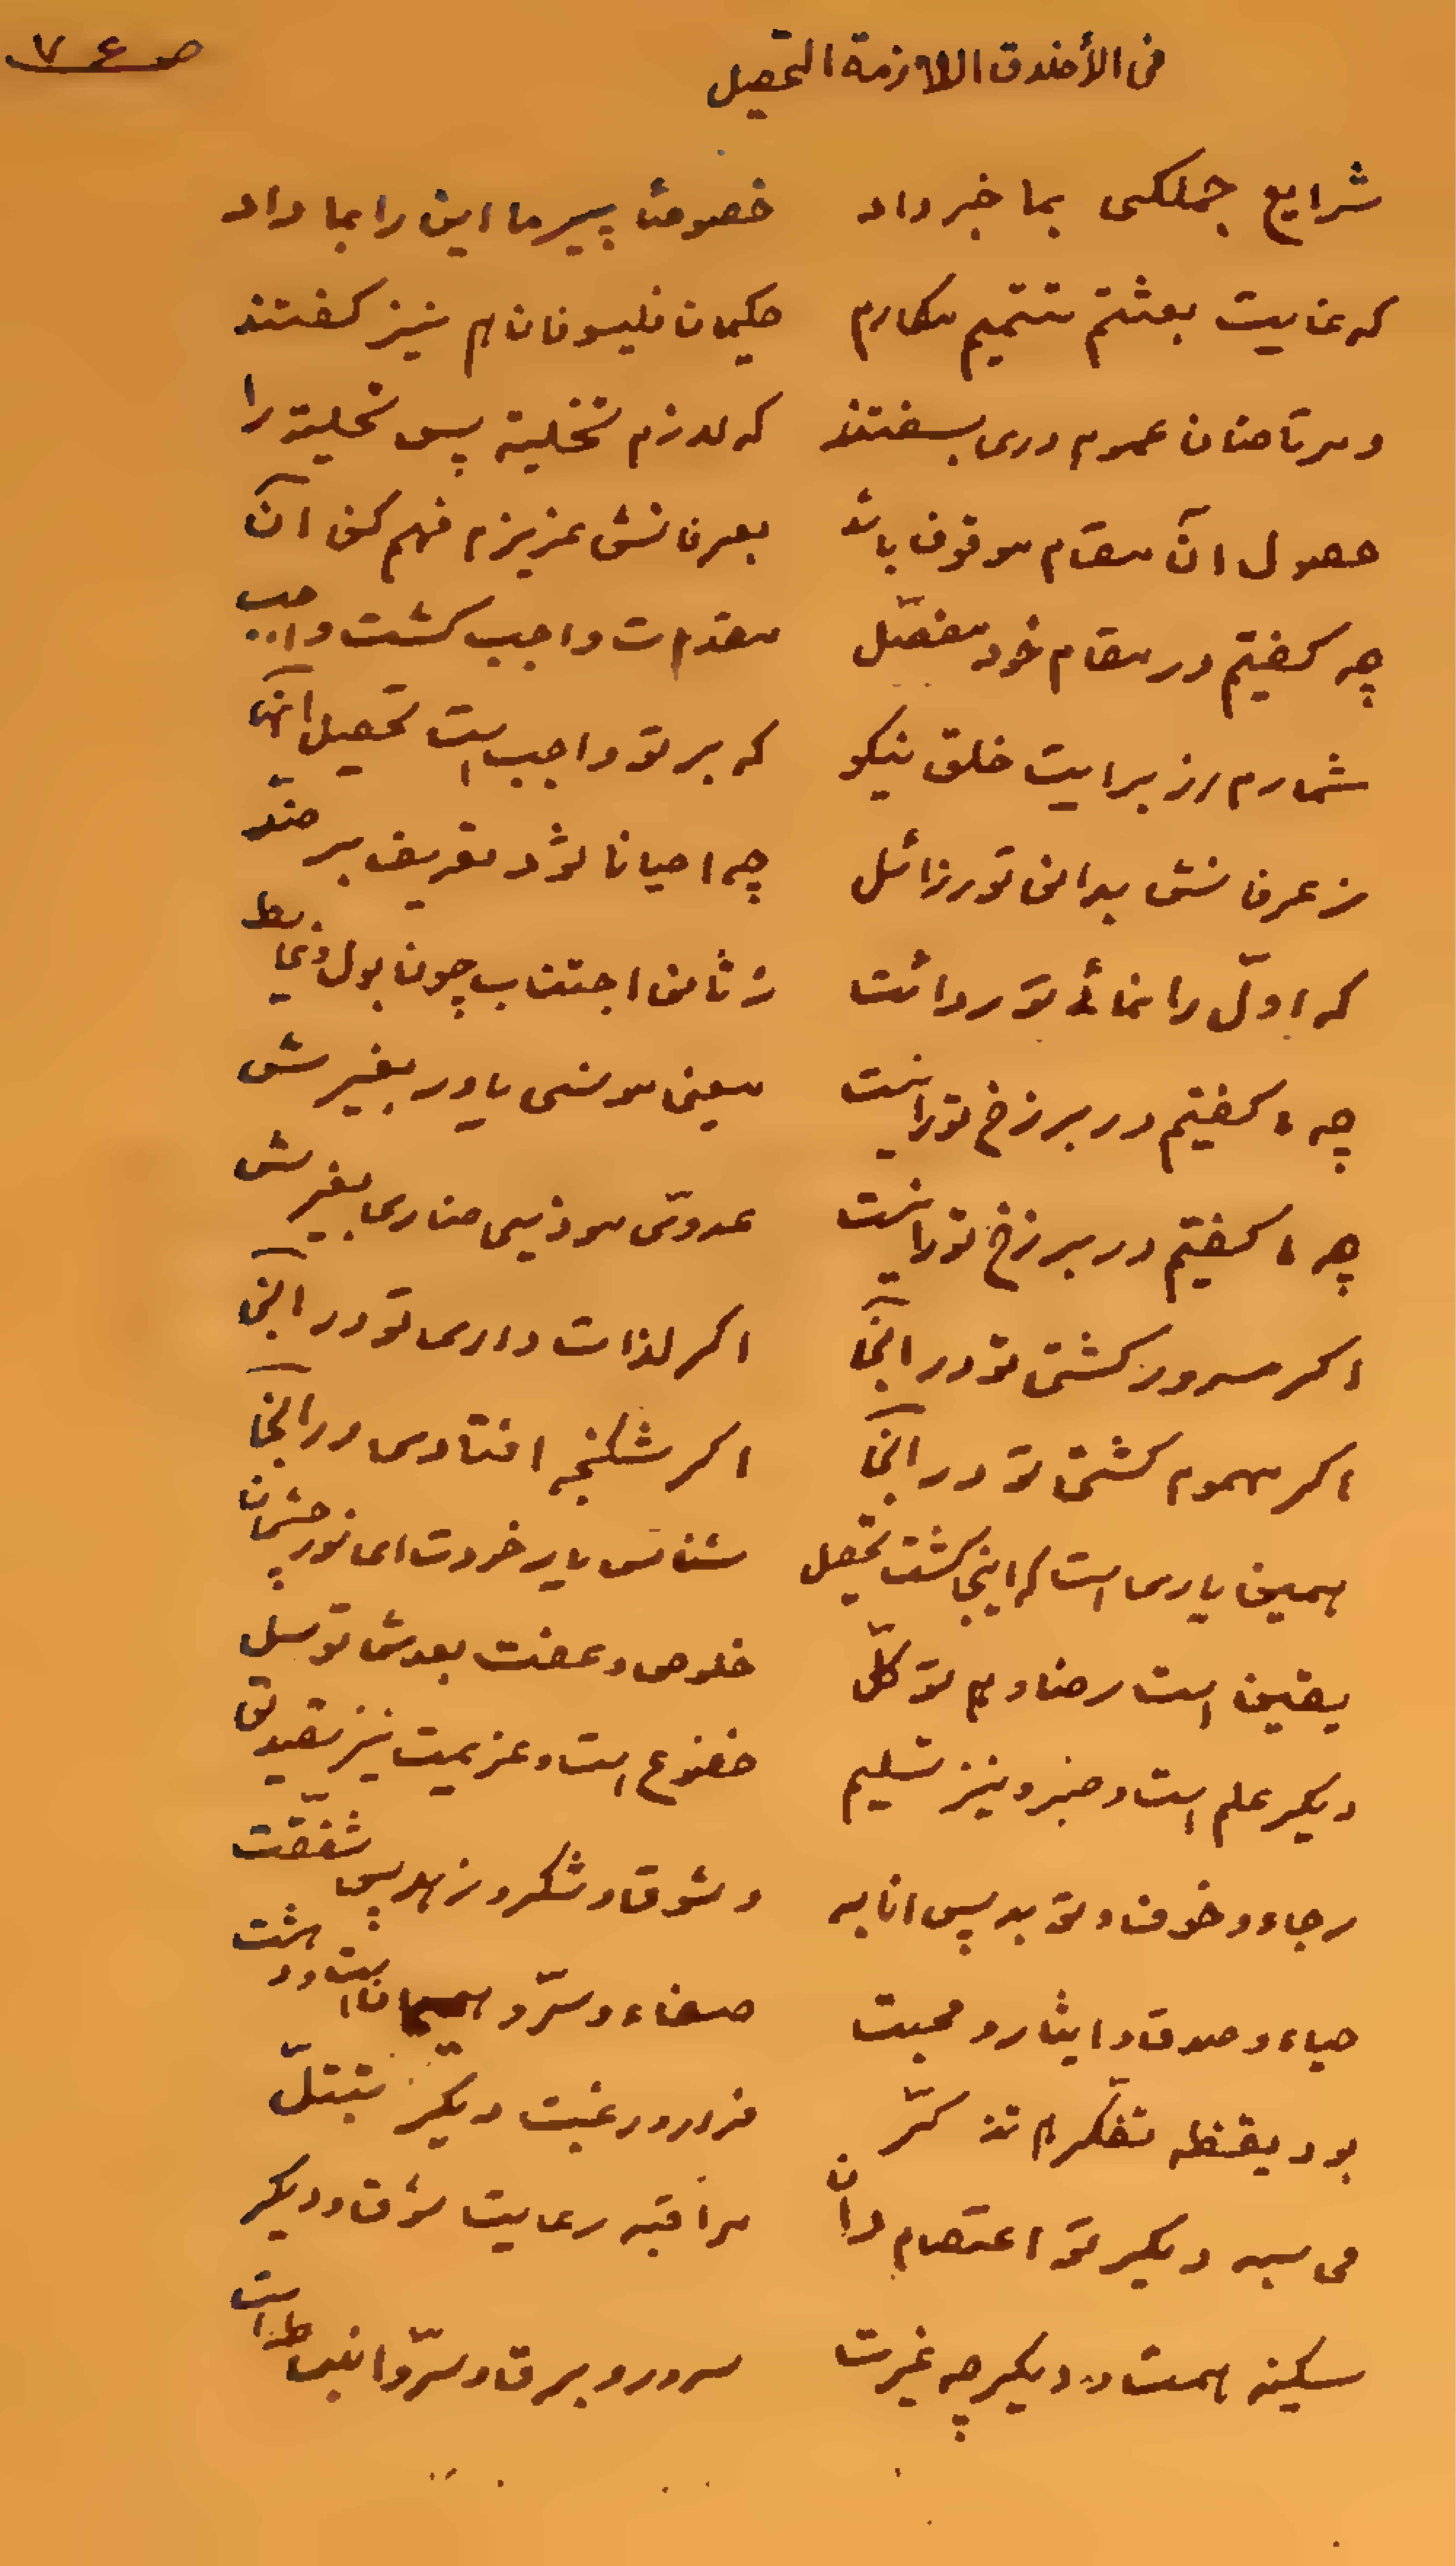 ص ٧٤
فى الأخلاق اللازمة التحصيل
شرایع جملکی بما خبر داد خصوصًا پیر ما این را بما داد
که غایت بعثتم تتمیم مکارم حکیمان فلیسوفان هم نیز کفتند
ومرتاضان عموم دری بسفتند که لازم تخلیة پس تحلیة را
حصول آن مقام موقوف باشد بعرفانش عزیزم فهم کن آن
چه کفیتم در مقام خود مفصّل مقدمات واجب کشت واجب
شمارم از برایت خلق نیکو که بر تو واجب است تحصیل آنها
ز عرفانش بدانی تو رزائل چه احیانا شود تعریف بر ضدّ
که اوّل را نمائی تو ردائت ز ثانی اجتناب چون بول وغایط
چه کفیتم در برزخ تورا نیست معینی مونسی یاور بغیرش
چه کفیتم در برزخ تورا نیست عدوّی موذیی ضاری بغیرش
اکر مسرور کشتی تو در آنجا اکر لذات داری تو در آنجا
اکر مهموم کشتی تو در آنجا اکر شکنجه افتادی در آنجا
همین یاری است که اینجا کشت تحصل شناس یار خودت ای نور چشمان
یقین است رضا و هم توکّل خلوص و عفت بعدش توسل
دیکر علم است و صبر و نیز تسلیم خضوع است و عزیمت نیز تصدیق
رجاء و خوف و توبه پس انابه و شوق و شکر و زهد پس شفقّت
حیاء و صدق و ایثار و محبت صفاء و سرّ و هیمان است و دهشت
بود یقظه تفکر هم تذکّر فرار و رغبت دیکر تبتلّ
محاسبه دیکر تو اعتصام دان مراقبه رعایت شوق و دیکر
سکینه همت و دیکر چه غیرت سرور و برق و سرّ و انبساط است